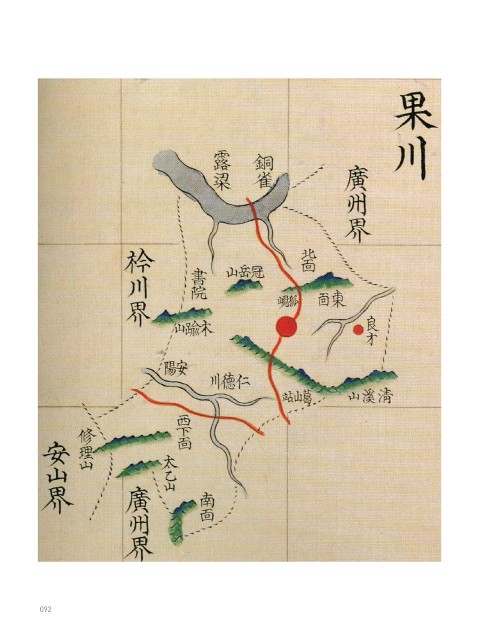 果川
銅雀
露梁
廣州界
北面
冠岳山
東面
狐峴
書院
衿川界
良才
安陽
仁德川
葛山站
淸溪山
西下面
修理山
太乙山
安山界
南面
廣州界
092